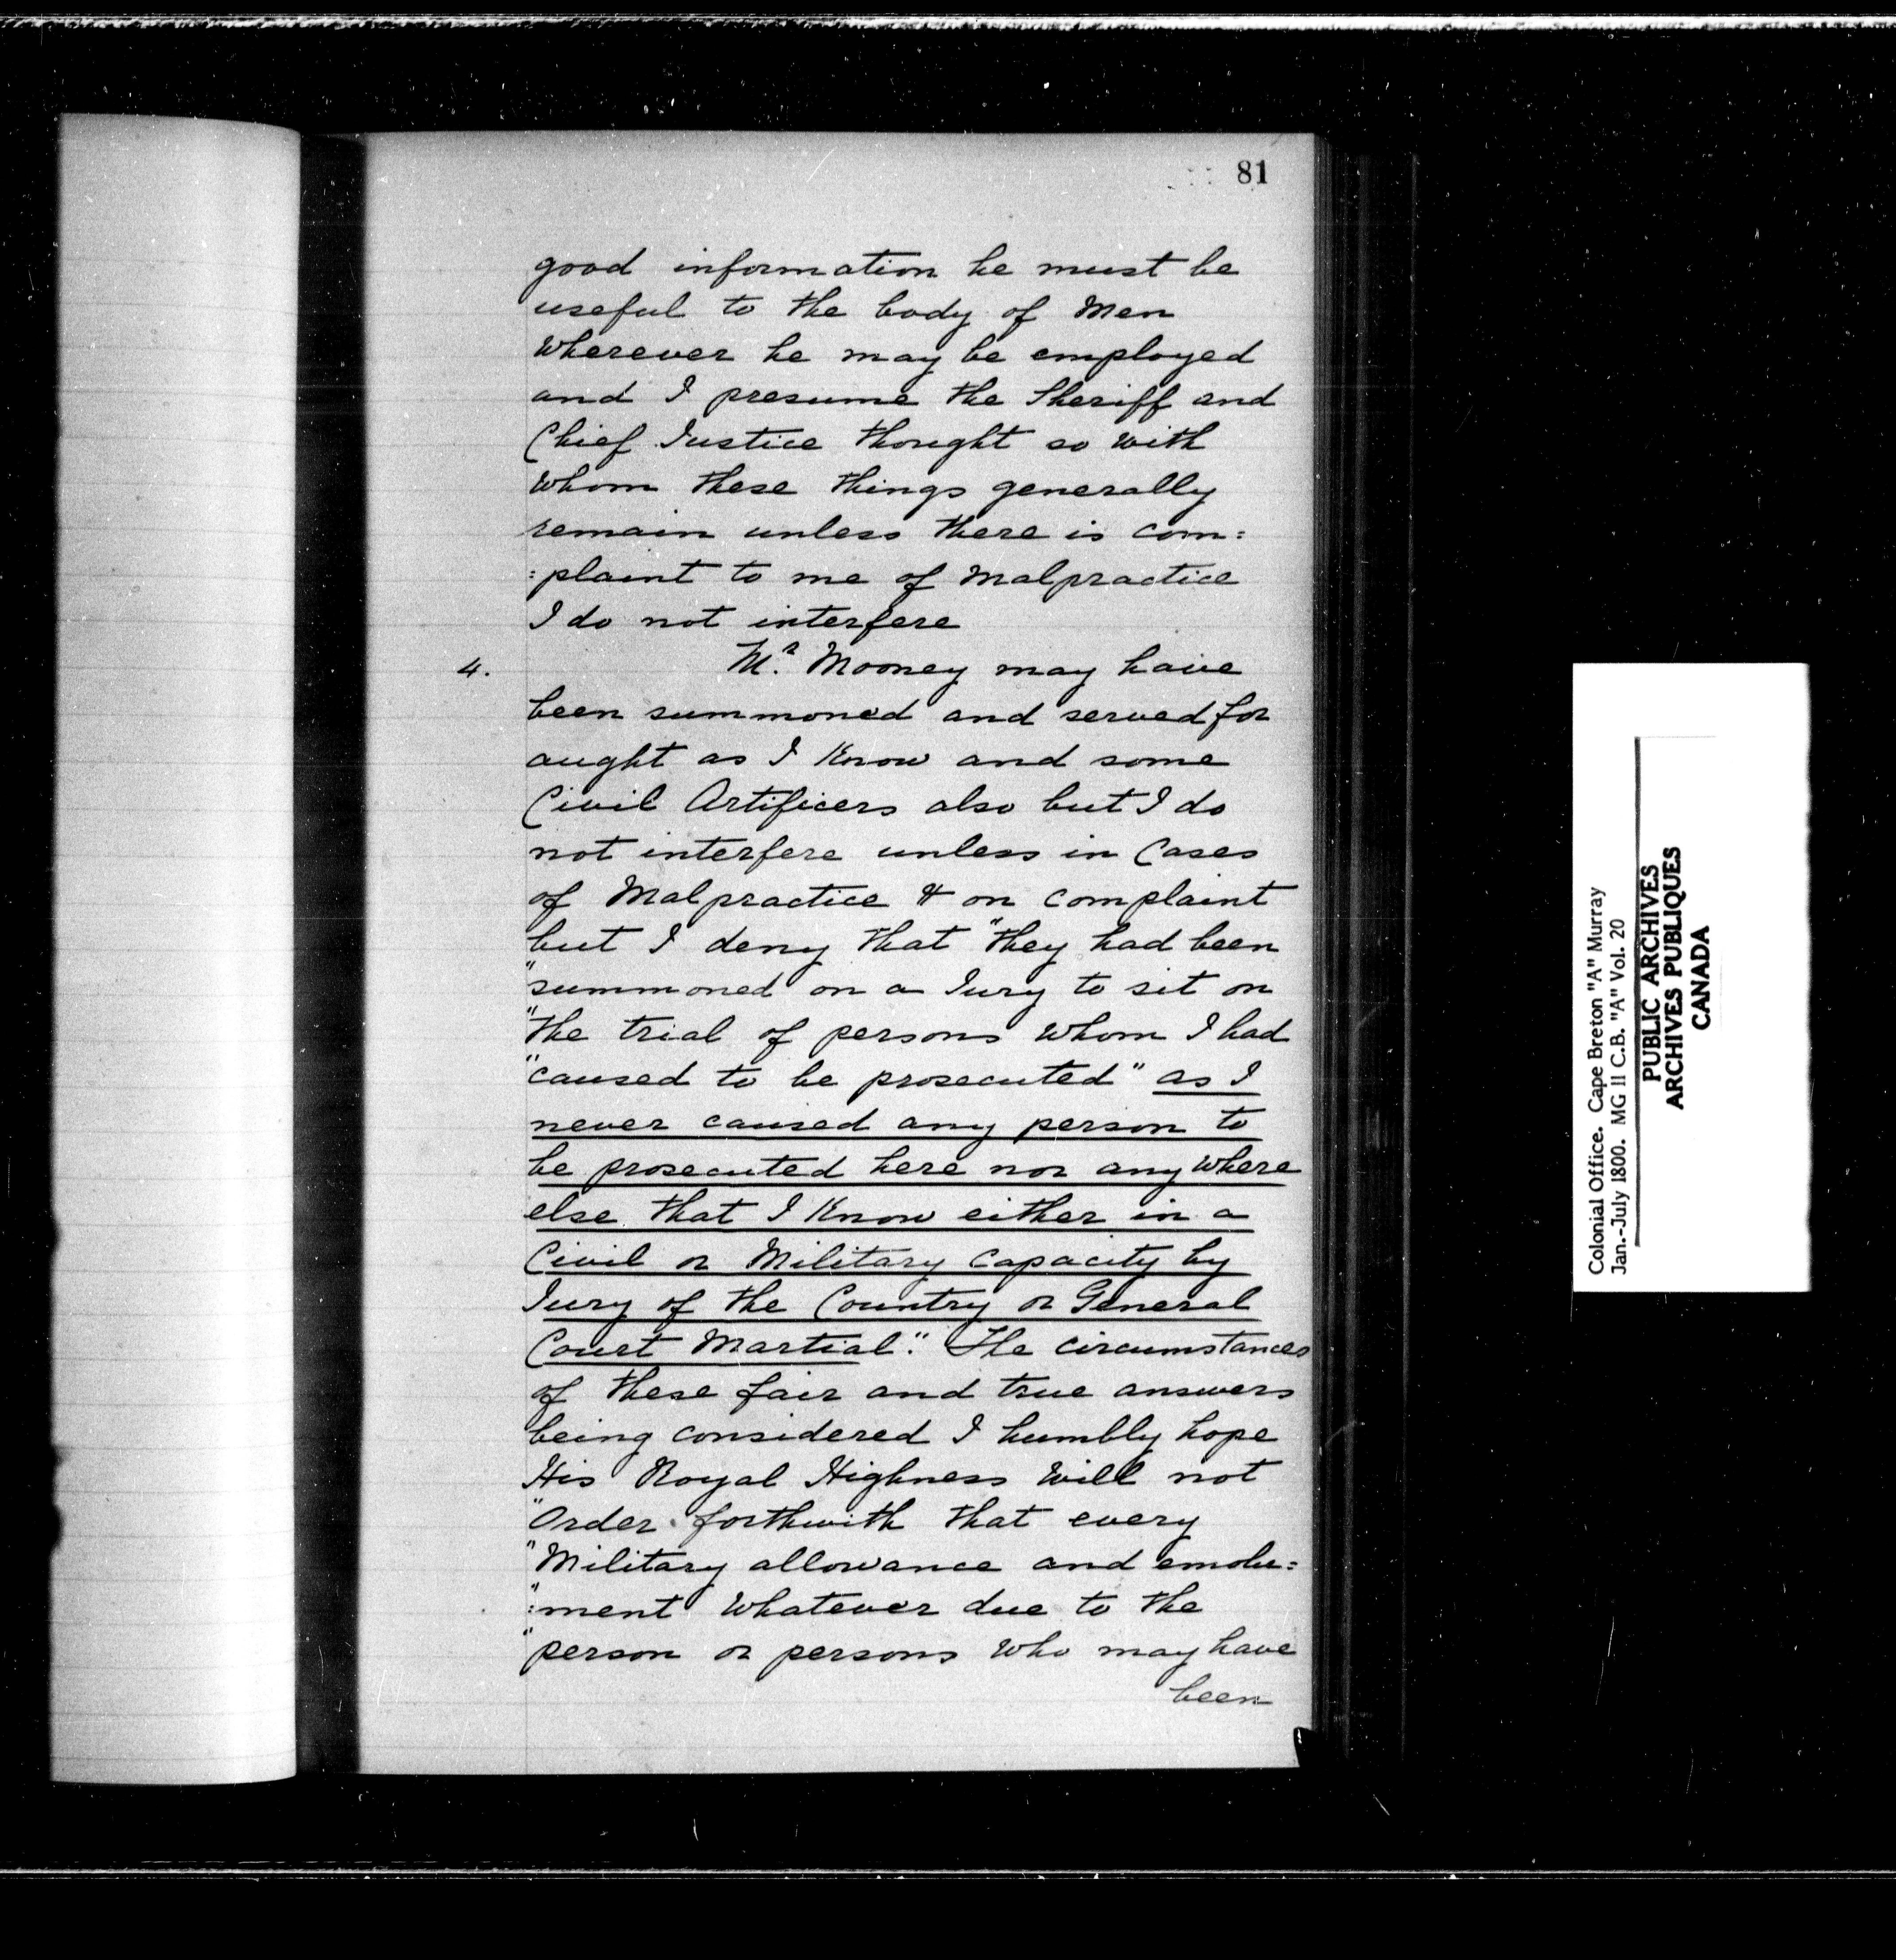 81
good information he must be
useful to the body of Men
wherever he may be employed
and I presume the Sheriff and
Chief Justice thought so with
whom these things generally
remain unless there is com:
:plaint to me of Malpractice
I do not interfere
4. Mr. Mooney may have
been summoned and served for
aught as I Know and some
Civil Artificers also but I do
not interfere unless in Cases
of Malpractice & on complaint
but I deny that "they had been
"summoned on a Jury to sit on
"the trial of persons whom I had
"caused to be prosecuted" as I
never caused any person to
be prosecuted here nor any where
else that I Know either in a
Civil or Military Capacity by
Jury of the Country or General
Court Martial." The circumstances
of these fair and true answers
being considered I humbly hope
His Royal Highness will not
"Order forthwith that every
"Military allowance and emolu:
":ment whatever due to the
"person or persons who may have
been
Colonial Office. Cape Breton "A" Murray
Jan.-July 1800. MG 11 C.B. "A" Vol. 20
PUBLIC ARCHIVES
ARCHIVES PUBLIQUES
CANADA